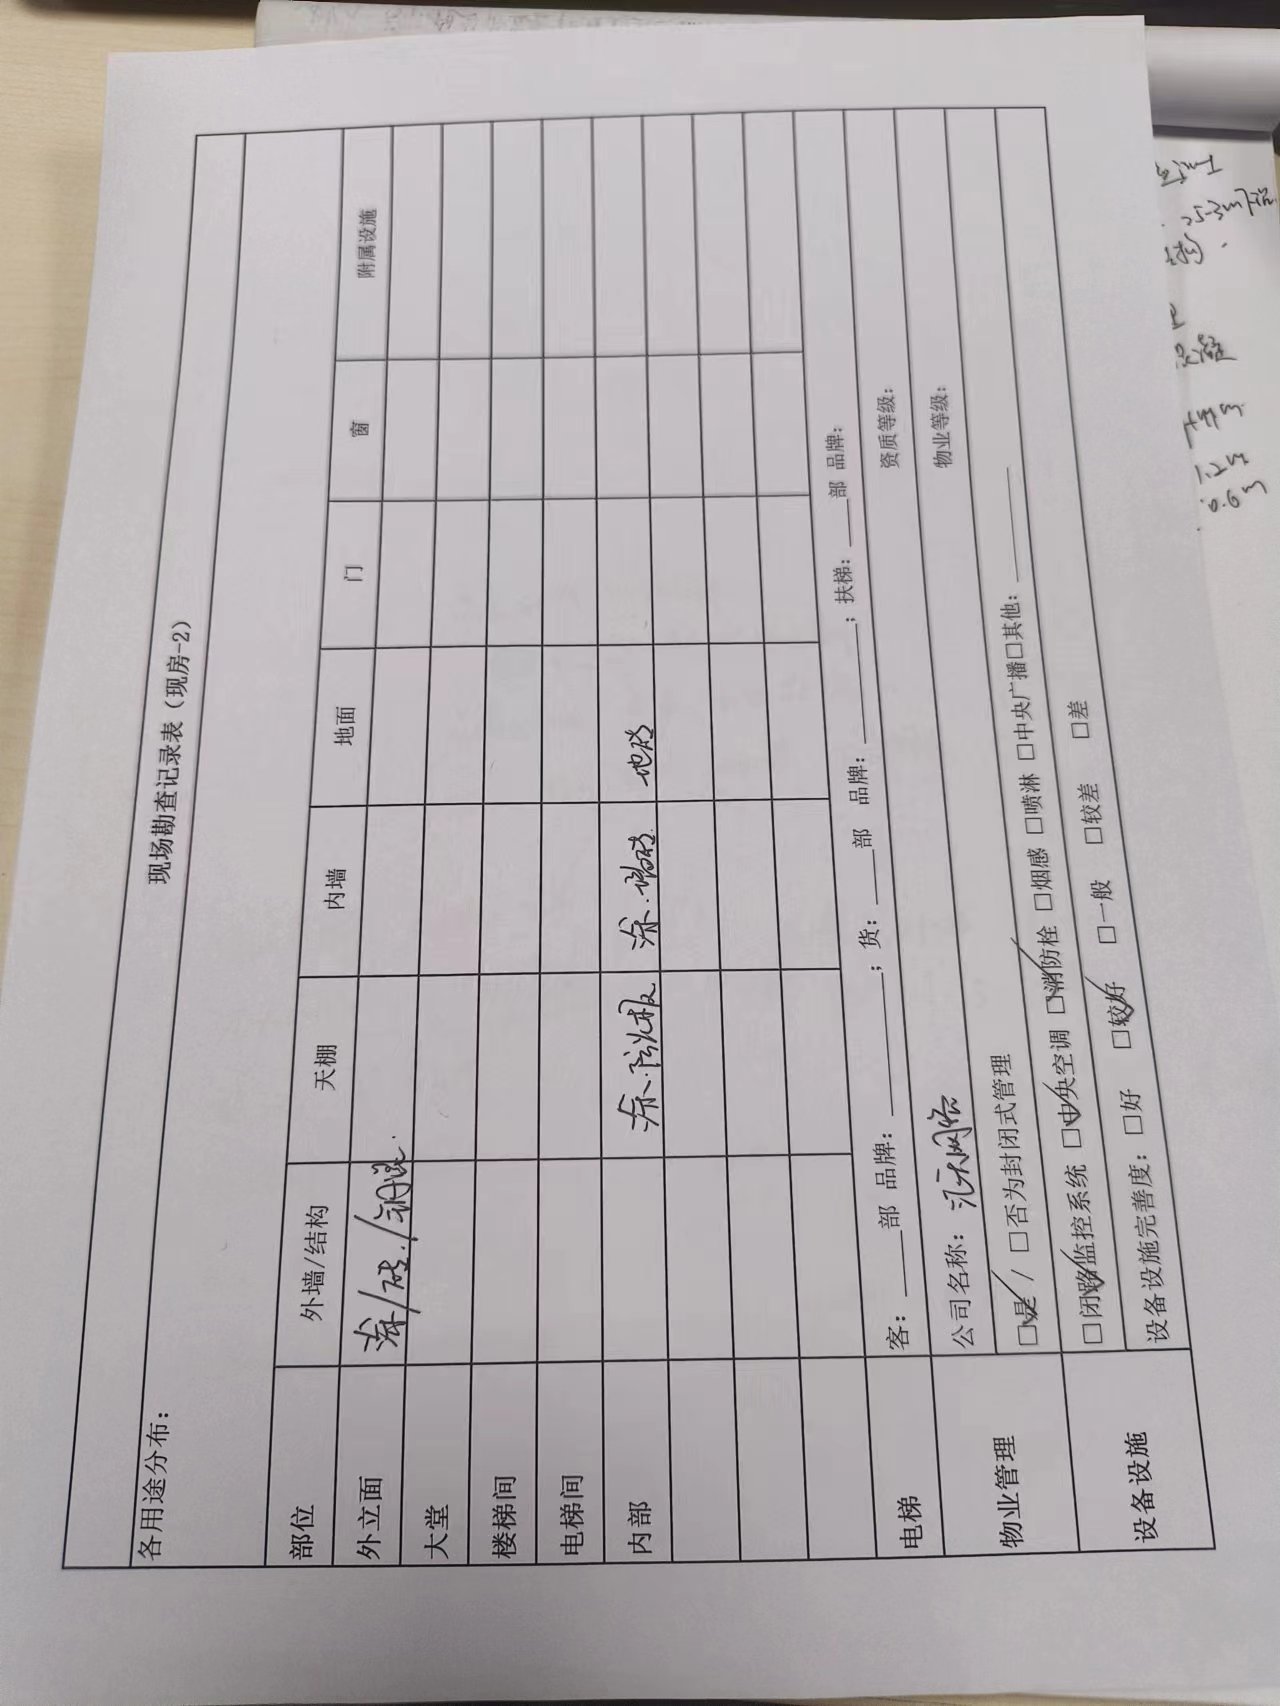 现场勘查记录表（现房-2）
各用途分布：
部位 外墙/结构 天棚 内墙 地面 门 窗 附属设施
外立面 涂/砖/钢混
大堂
楼梯间
电梯间
内部 涂. 涂.墙砖. 地砖
电梯 客：____部 品牌：________；货：____部 品牌：________；扶梯：____部 品牌：
物业管理 公司名称： 资质等级：
□是 / □否为封闭式管理 物业等级：
设备设施 □闭路监控系统 □中央空调 □消防栓 □烟感 □喷淋 □中央广播□其他：______
设备设施完善度： □好 □较好 □一般 □较差 □差
0.6m